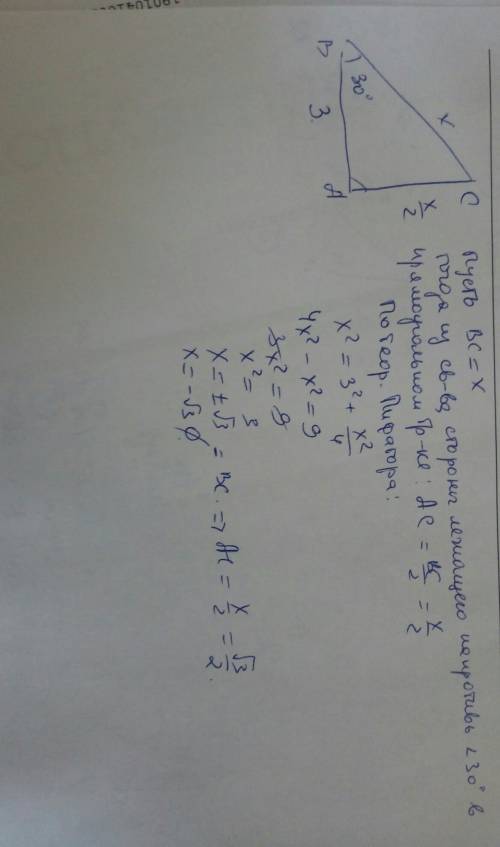 B
30°
x
C
3
A
x/2
Пусть BC = x
тогда из св-ва стороны лежащего напротивь ∠30° в
прямоугольном тр-ке: AC = BC/2 = x/2
По теор. Пифагора:
x² = 3² + x²/4
4x² - x² = 9
3x² = 9
x² = 3
x = ±√3 = BC. => AC = x/2 = √3/2.
x = -√3 ∅